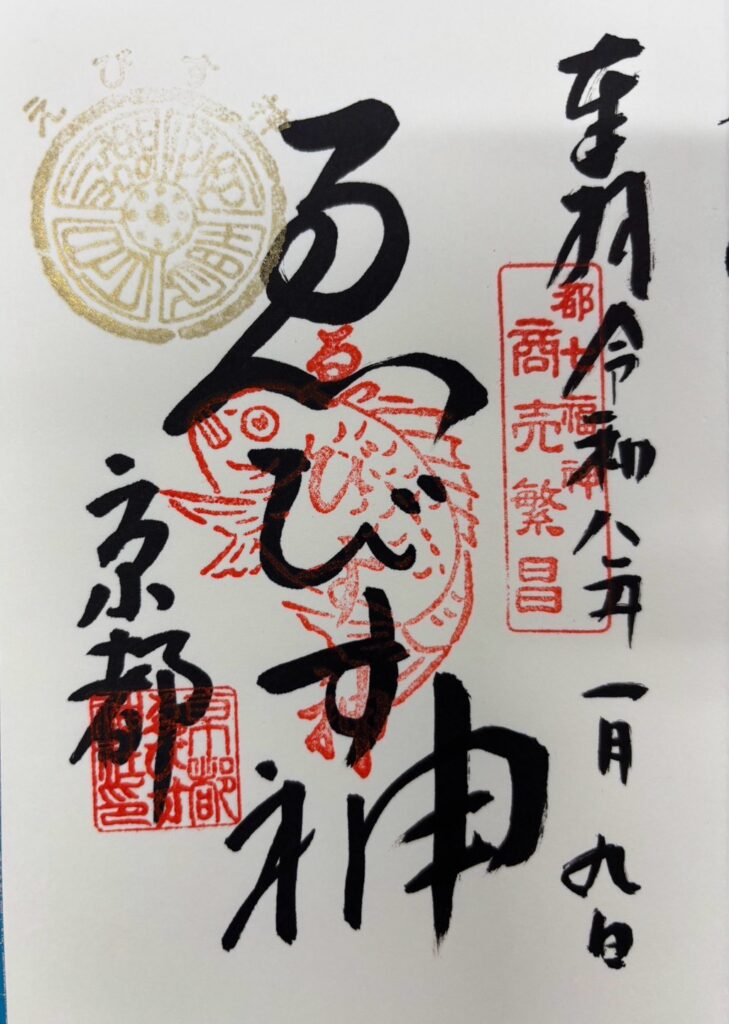 奉拝 令和八年 一月 九日
都七福神
商売繁昌
ゑびす神
ゑびす神
えびす神
京都